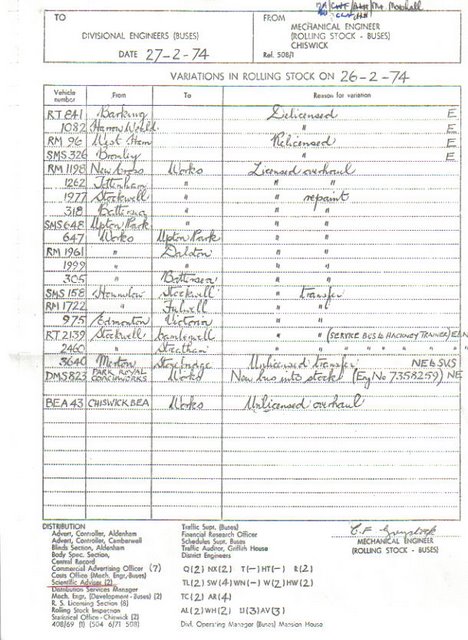 Mr. Marshall
TO FROM
MECHANICAL ENGINEER
DIVISIONAL ENGINEERS (BUSES) (ROLLING STOCK - BUSES)
CHISWICK
DATE 27-2-74 Ref. 508/1
VARIATIONS IN ROLLING STOCK ON 26-2-74
Vehicle number From To Reason for variation
RT 841 Barking Delicensed E
1082 Harrow Weald " E
RM 96 West Ham Relicensed E
SMS 326 Bromley " E
RM 1198 New Cross Works Licensed overhaul
1262 Tottenham " " "
1977 Stockwell " " repaint
318 Battersea " " "
SMS 648 Upton Park " " "
647 Works Upton Park " "
RM 1961 " Dalston " "
1999 " " " "
305 " Battersea " "
SMS 158 Hounslow Stockwell " transfer
RM 1722 " Fulwell " "
975 Edmonton Victoria " "
RT 2139 Stockwell Camberwell " " (SERVICE BUS to HACKNEY TRAINER)
2460 " Streatham " " " " " "
3644 Merton Stonebridge Unlicensed transfer NE to SVS
DMS 823 PARK ROYAL COACHWORKS Works New bus into stock (Eng No 7358259) NE
BEA 43 CHISWICK BEA Works Unlicensed overhaul
DISTRIBUTION
Advert, Controller, Aldenham
Advert, Controller, Camberwell
Blinds Section, Aldenham
Body Spec. Section,
Central Record
Commercial Advertising Officer (7)
Costs Office (Mech. Engr. Buses)
Scientific Adviser (2)
Distribution Services Manager
Mech. Engr. (Development - Buses) (2)
R. S. Licensing Section (8)
Rolling Stock Inspection
Statistical Office - Chiswick (2)
408/69 (1) (504 6/71 508)
Traffic Supt. (Buses)
Financial Research Officer
Schedules Supt. Buses
Traffic Auditor, Griffith House
District Engineers
Q(2) NX(2) T(-) HT(-) R(2)
TL(2) SW(4) WN(-) W(2) HW(2)
TC(2) AR(4)
AL(2) WH(2) U(3) AV(3)
Divl. Operating Manager (Buses) Mansion House
MECHANICAL ENGINEER
(ROLLING STOCK - BUSES)